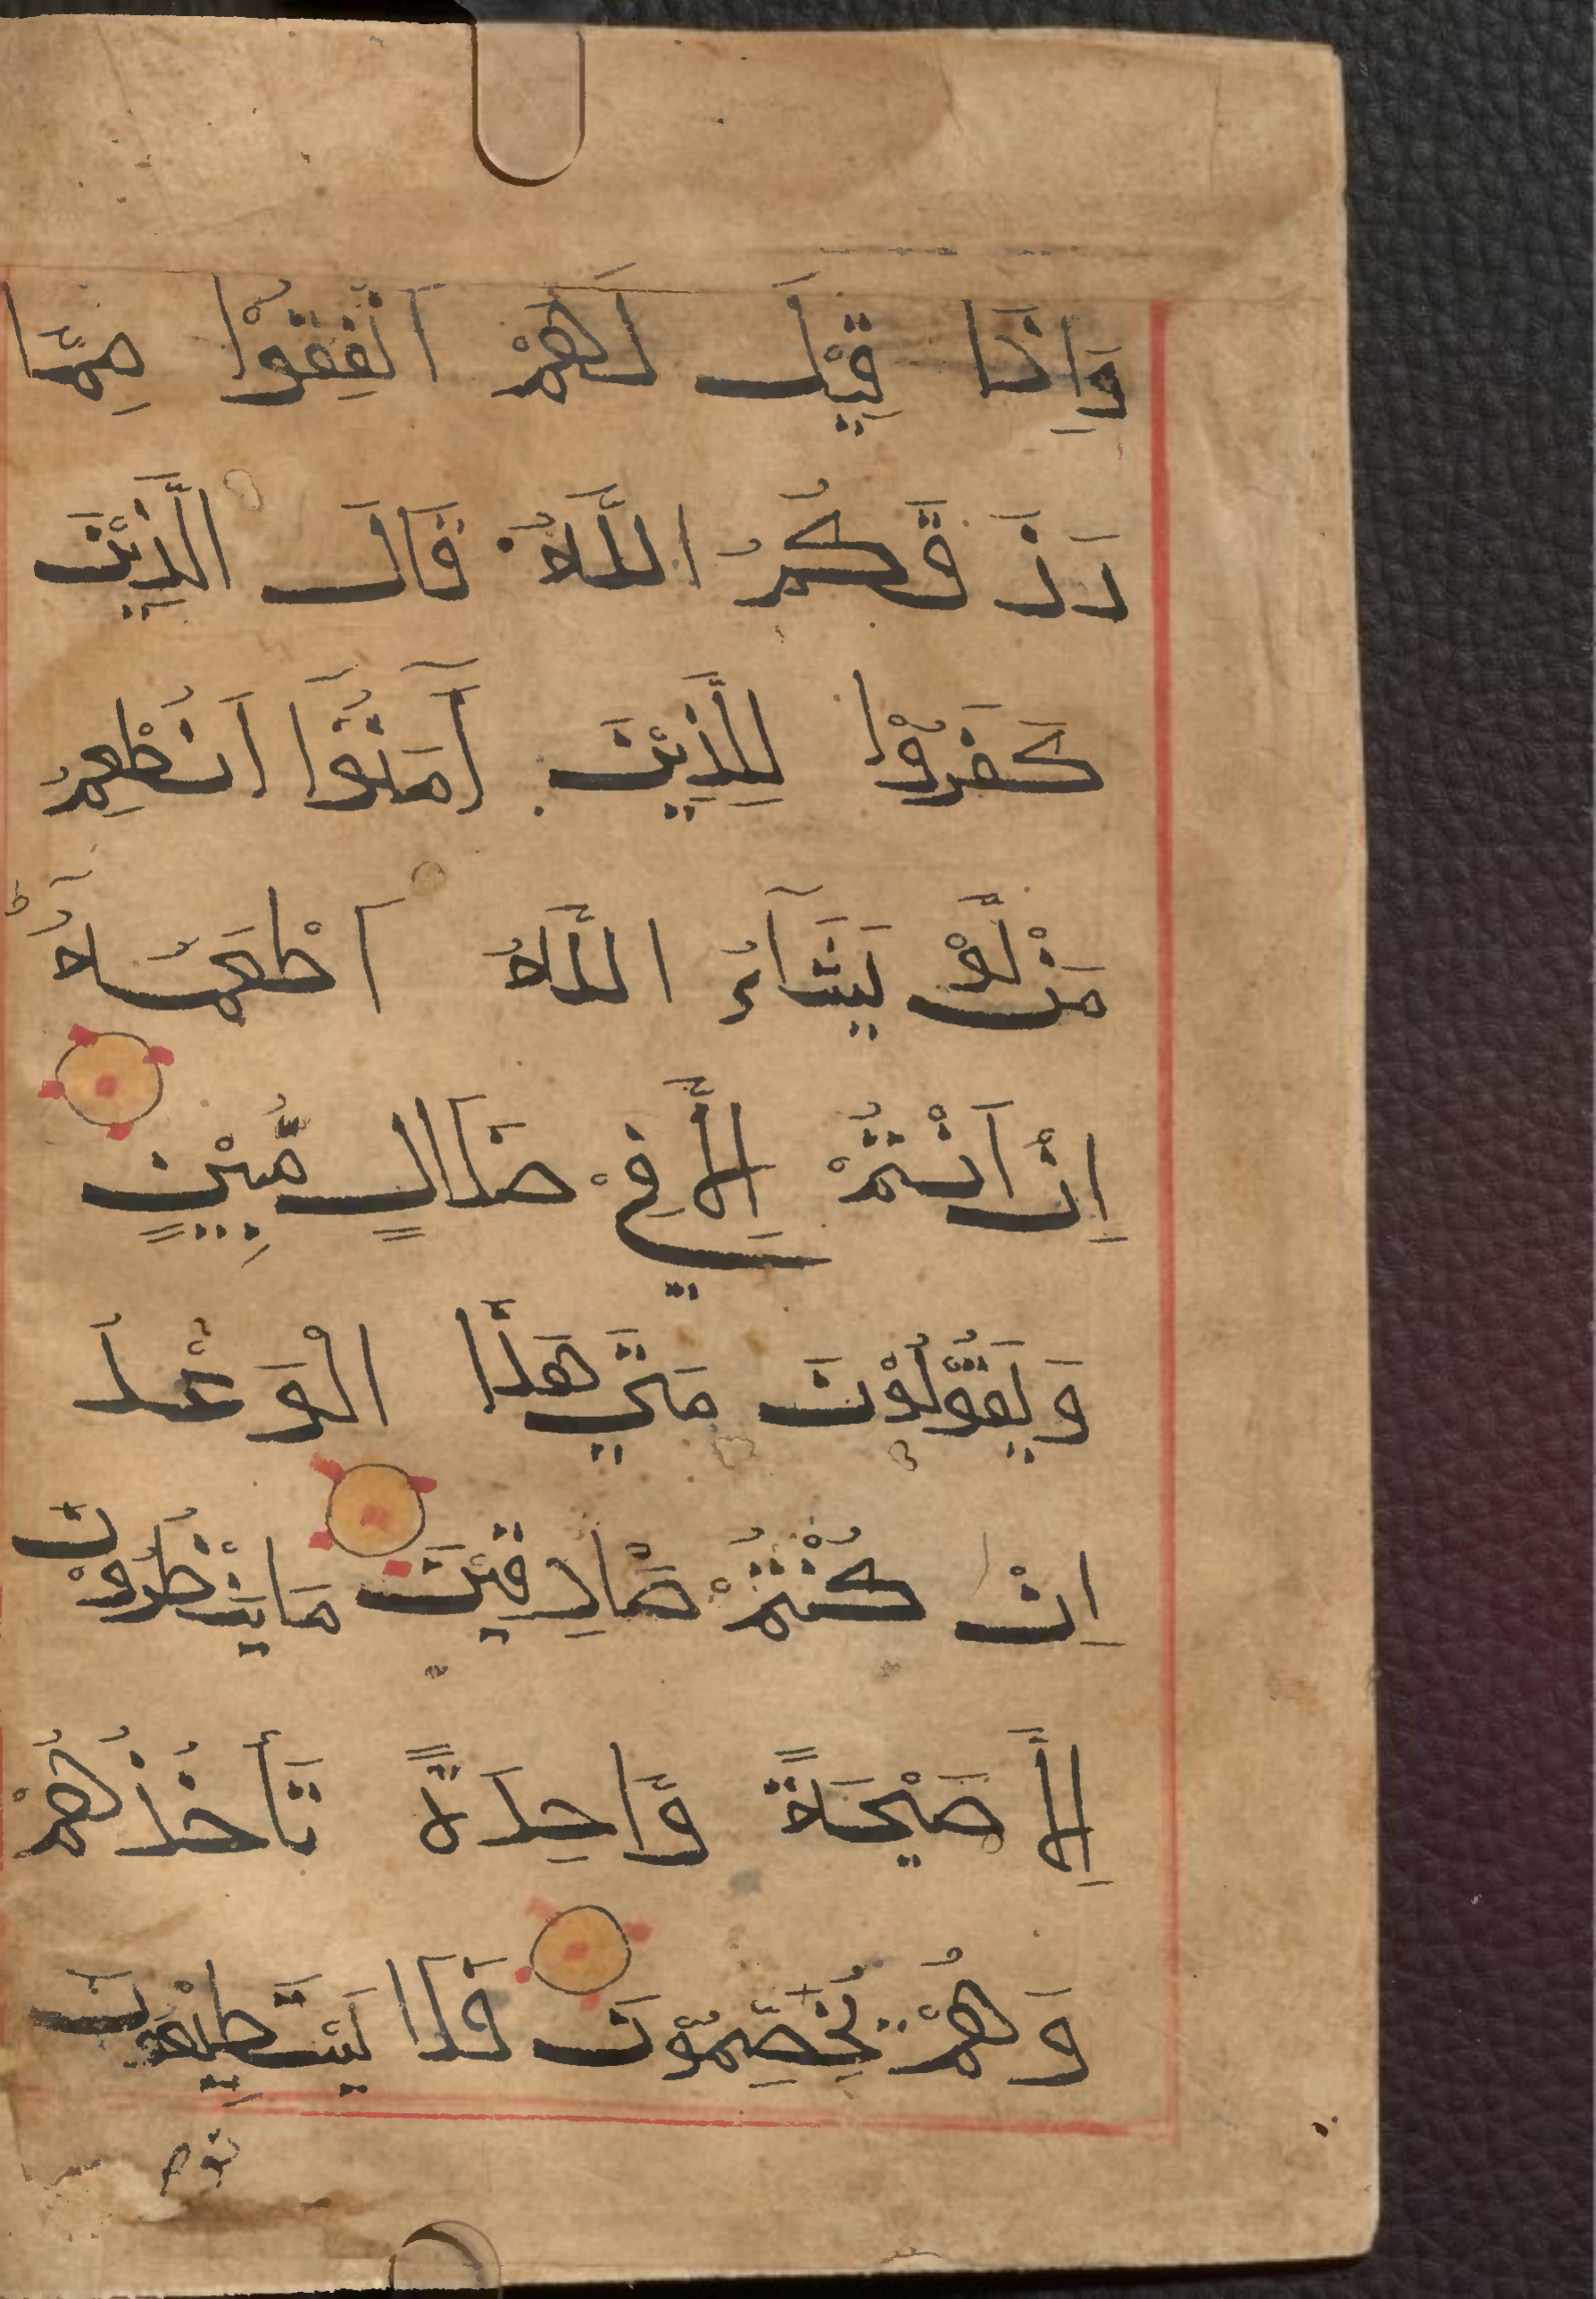 وَاِذَا قِيْلَ لَهُمْ اَنْفِقُوْا مِمَّا
رَزَقَكُمُ اللَّهُ قَالَ الَّذِيْنَ
كَفَرُوْا لِلَّذِيْنَ آمَنُوَّا اَنُطْعِمُ
مَنْ لَّوْ يَشَآءُ اللَّهُ اَطْعَمَهُٓ
اِنْ اَنْتُمْ اِلَّا فِيْ ضَلَالٍ مُّبِيْنٍ
وَيَقُوْلُوْنَ مَتَي هَذَا الْوَعْدُ
اِنْ كُنْتُمْ صَادِقِيْنَ مَايَنْظُرُوْنَ
اِلَّا صَيْحَةً وَّاحِدَةً تَأخُذُهُمْ
وَهُمْ يَخِصِّمُوْنَ فَلَا يَسْتَطِيْعُوْنَ